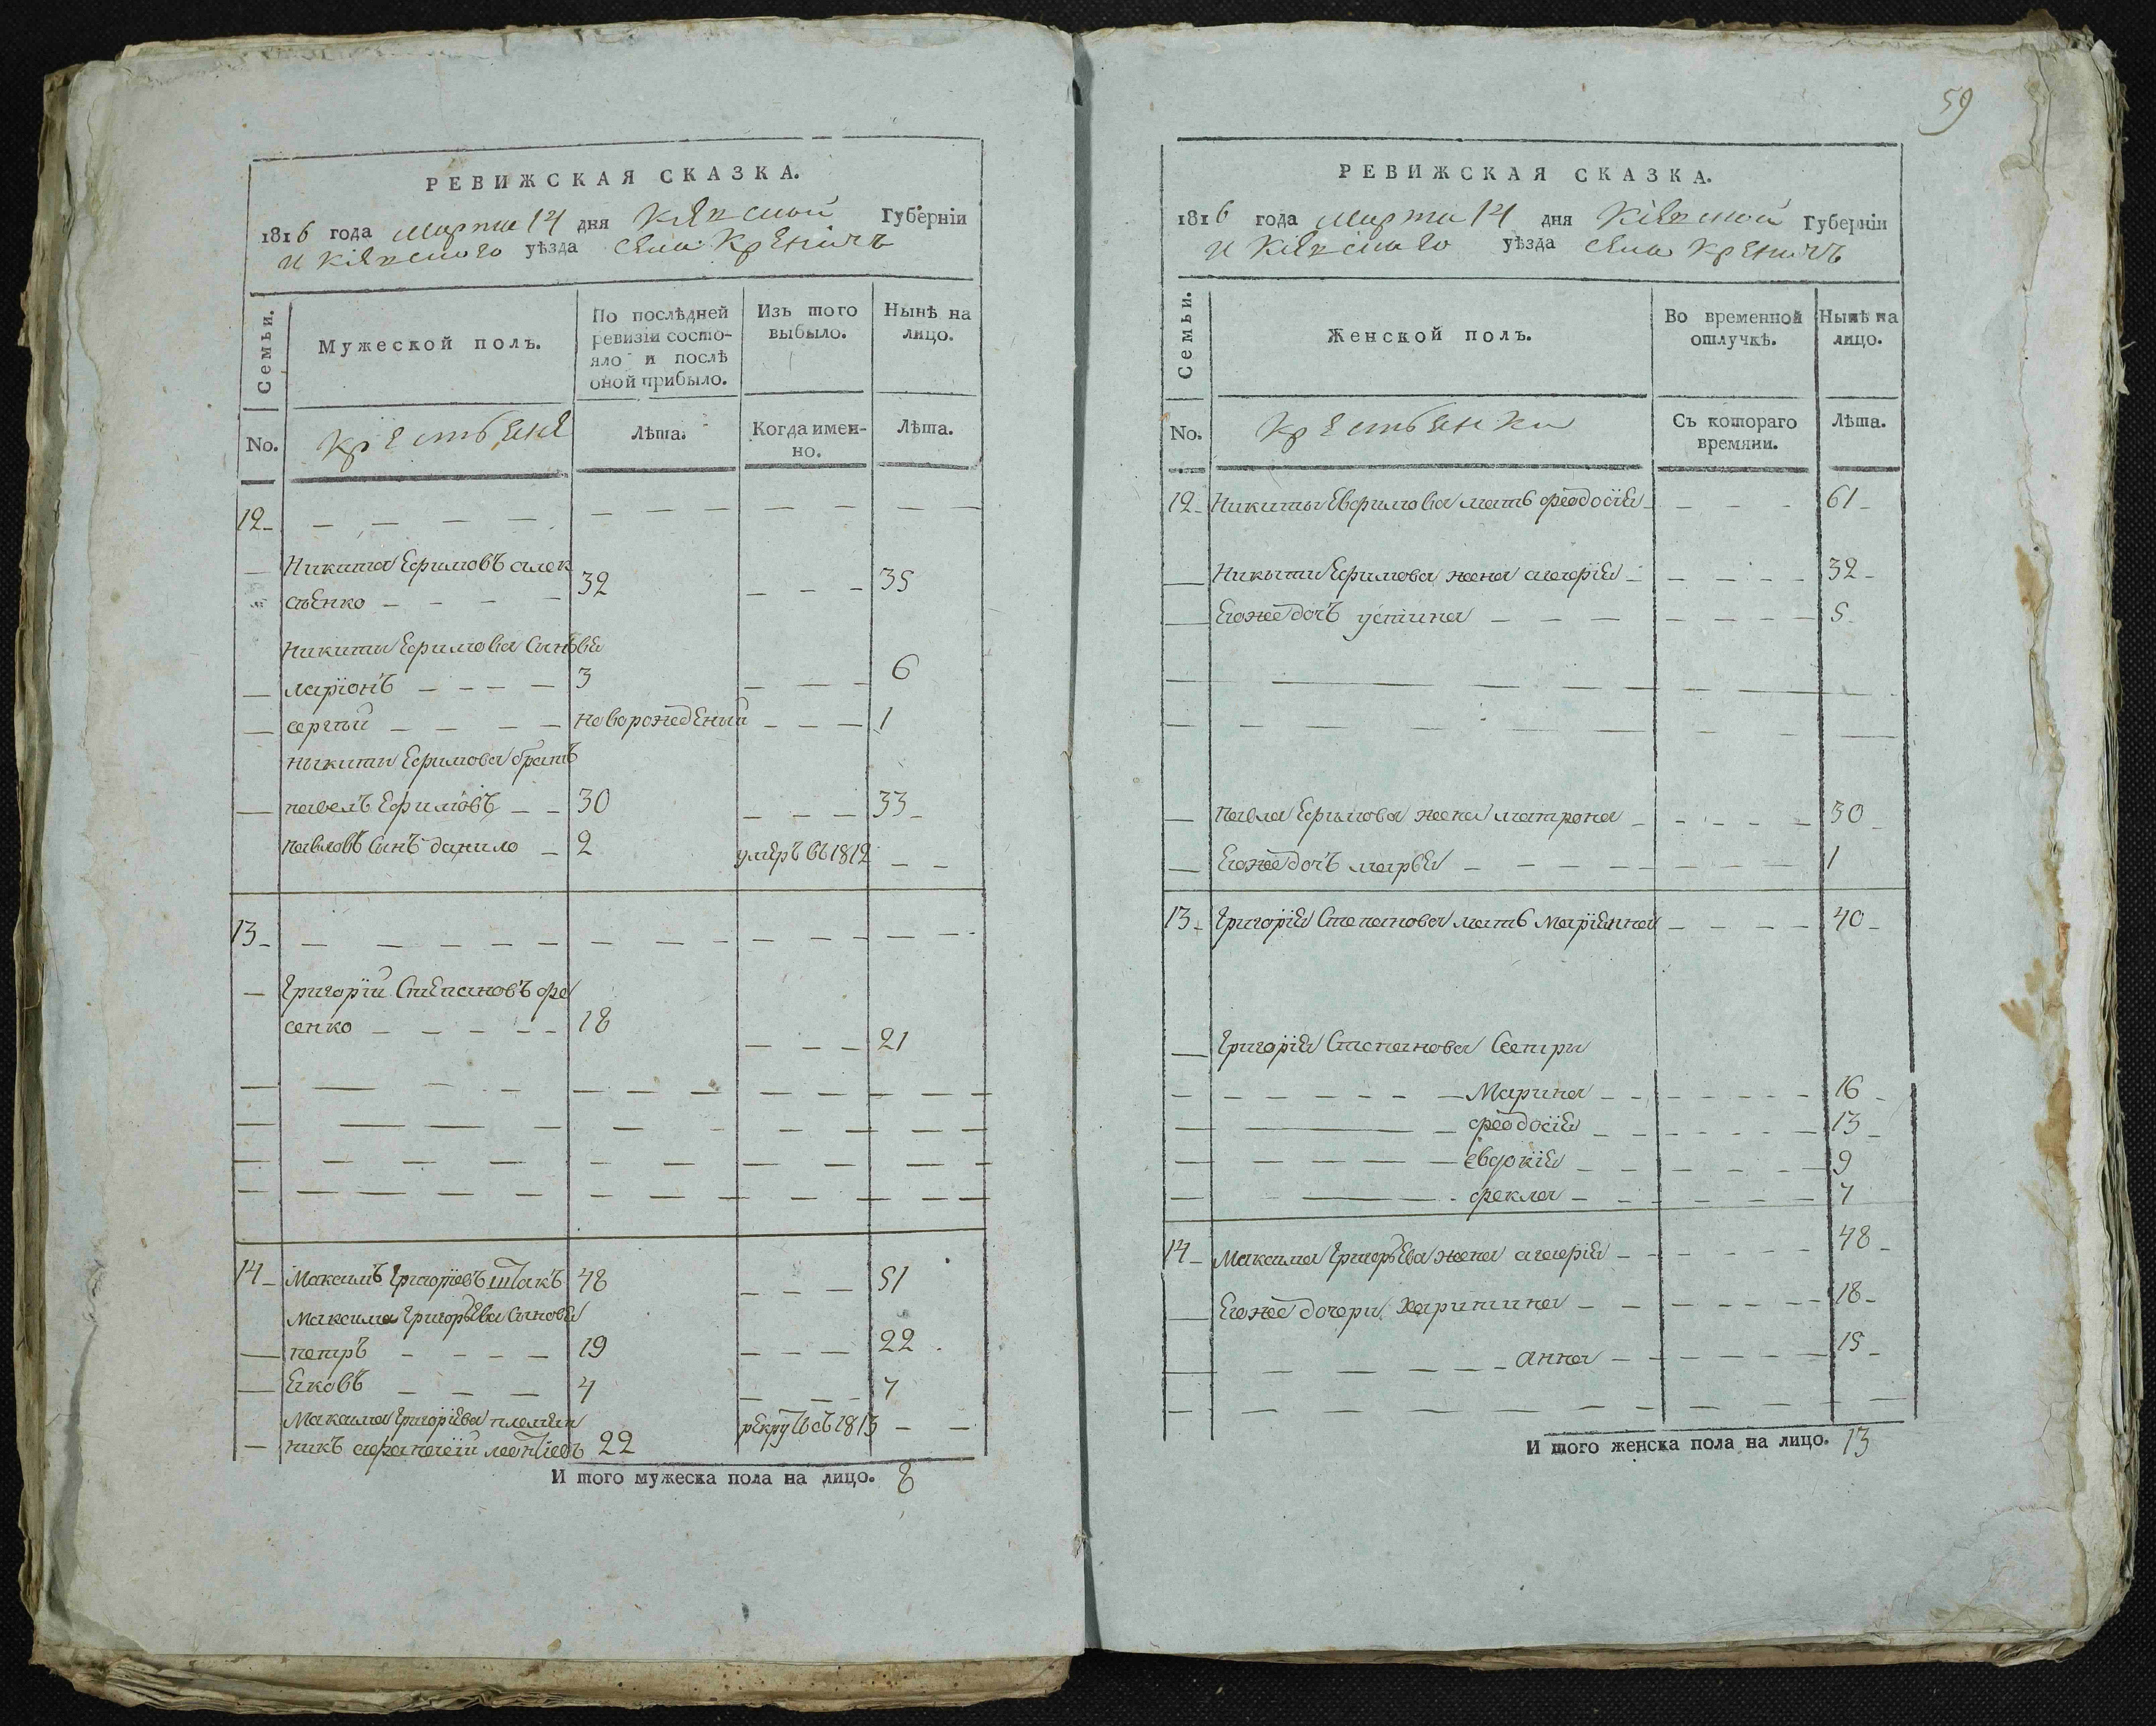 РЕВИЖСКАЯ СКАЗКА.
1816 года марта 14 дня Кіевской Губерніи
и Кіевского уѣзда села Креничъ
Семьи.
Мужеской полъ.
По послѣдней ревизіи состояло и послѣ оной прибыло.
Изъ того выбыло.
Нынѣ на лицо.
No.
крестьяне
Лѣта.
Когда именно.
Лѣта.
12
Никита Ефимовъ алек
сѣенко 32 35
Никиты Ефимова Сыновья
ларіонъ 3 6
сергѣй новорожденый 1
Никиты Ефимова братъ
павелъ Ефимовъ 30 33
павловъ Сынъ данило 2 умеръ въ 1812
13
Григорій Степановъ фе
сенко 18 21
14 Максимъ Григоріевъ шпакъ 48 51
Максима Григорьева Сыновья
петръ 19 22
Яковъ 4 7
Максима Григоріева племян
никъ афанасій леонтіевъ 22 рекрутъ въ 1813
И того мужеска пола на лицо. 8
59
РЕВИЖСКАЯ СКАЗКА.
1816 года марта 14 дня Кіевской Губерніи
и Кіевского уѣзда села Креничъ
Семьи.
Женской полъ.
Во временной отлучкѣ.
Нынѣ на лицо.
No.
крестьянки
Съ котораго времяни.
Лѣта.
12 Никиты Ефимова мать феодосія 61
Никиты Ефимова жена агафія 32
Егоже дочъ устина 5
павла Ефимова жена матрона 30
Егоже дочъ марья 1
13 Григорія Степанова мать Маріянна 40
Григорія Степанова Сестры
Марина 16
феодосія 13
евдокія 9
фекла 7
14 Максима Григорьева жена агафія 48
Егоже дочери харитина 18
анна 15
И того женска пола на лицо. 13